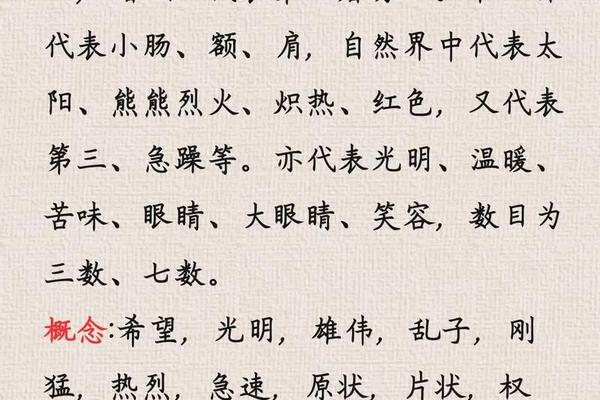 代表小肠、额、肩, 自然界中代表太
阳、熊熊烈火、炽热、红色, 又代表
第三、急躁等。亦代表光明、温暖、
苦味、眼睛、大眼睛、笑容, 数目为
三数、七数。
概念:希望, 光明, 雄伟, 乱子, 刚
猛, 热烈, 急速, 原状, 片状, 权